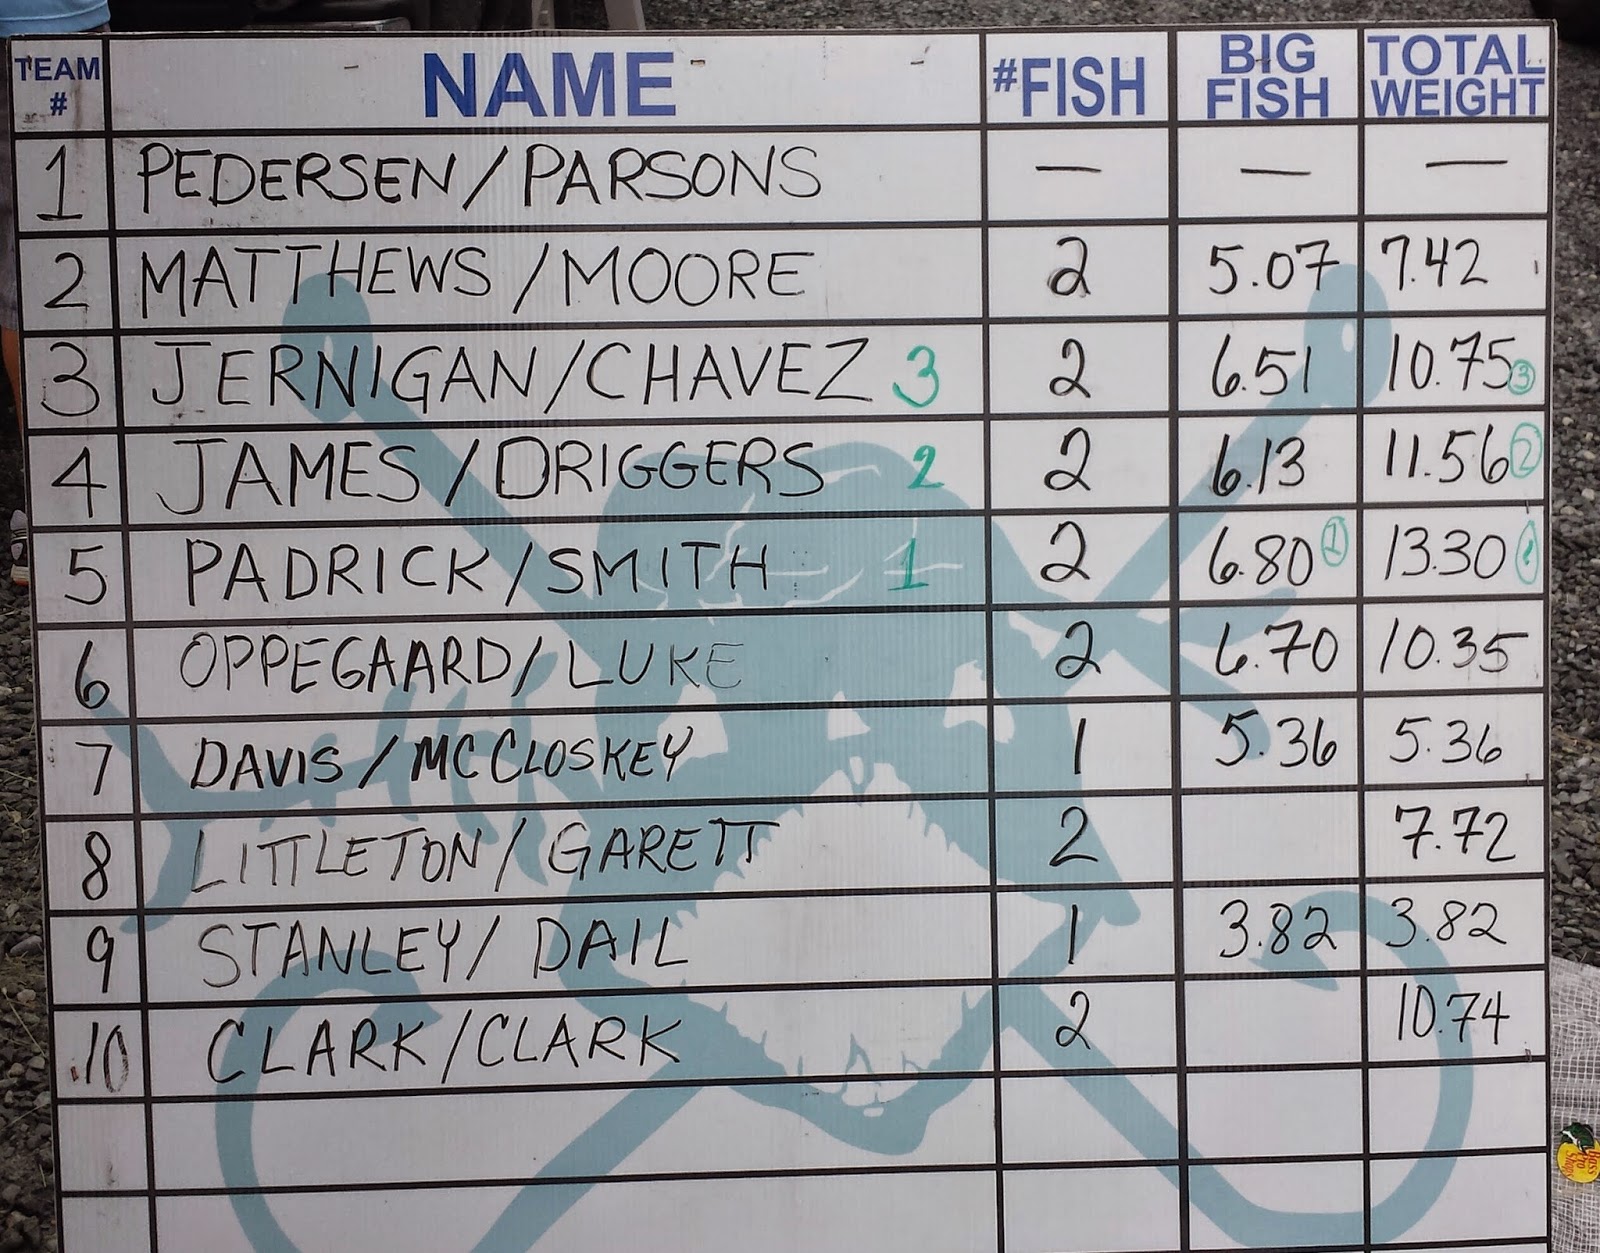 TEAM # NAME #FISH BIG FISH TOTAL WEIGHT
1 PEDERSEN/PARSONS — — —
2 MATTHEWS/MOORE 2 5.07 7.42
3 JERNIGAN/CHAVEZ 3 2 6.51 10.75 3
4 JAMES/DRIGGERS 2 2 6.13 11.56 2
5 PADRICK/SMITH 1 2 6.80 1 13.30 1
6 OPPEGAARD/LUKE 2 6.70 10.35
7 DAVIS/MCCLOSKEY 1 5.36 5.36
8 LITTLETON/GARETT 2 7.72
9 STANLEY/DAIL 1 3.82 3.82
10 CLARK/CLARK 2 10.74
Bass Pro Shops